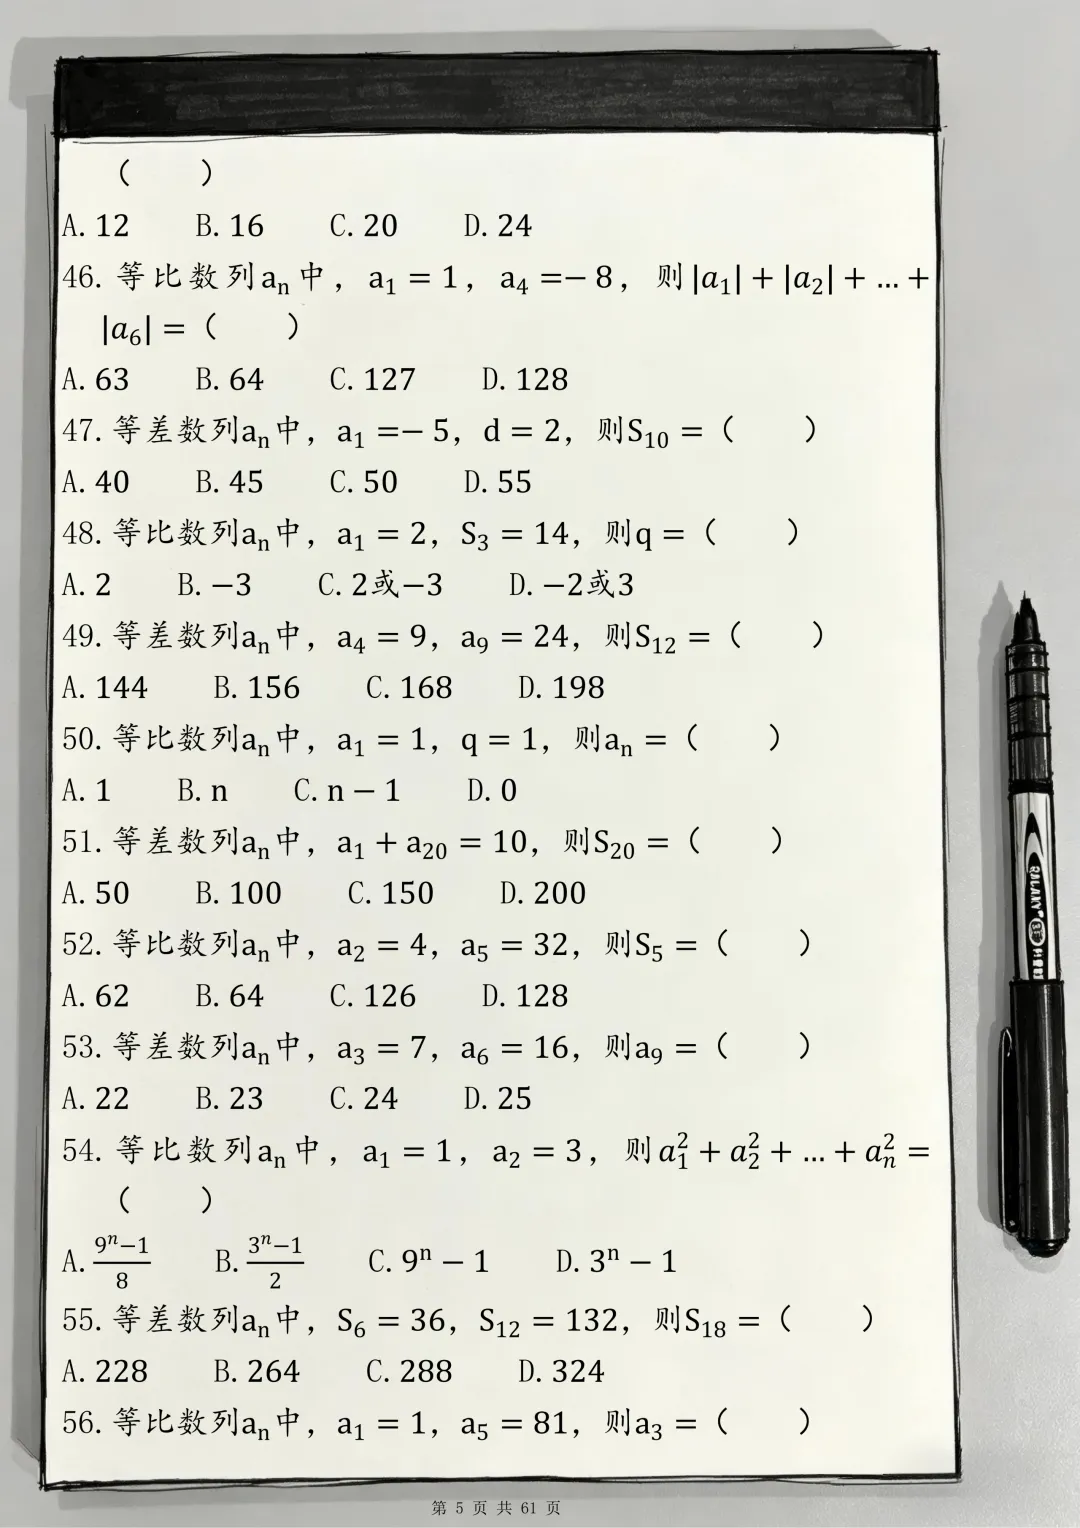 (  )
A. 12  B. 16  C. 20  D. 24
46. 等比数列aₙ中，a₁ = 1，a₄ =− 8，则|a₁| + |a₂| + … +
|a₆| =（  ）
A. 63  B. 64  C. 127  D. 128
47. 等差数列aₙ中，a₁ =− 5，d = 2，则S₁₀ =（  ）
A. 40  B. 45  C. 50  D. 55
48. 等比数列aₙ中，a₁ = 2，S₃ = 14，则q =（  ）
A. 2  B. −3  C. 2或−3  D. −2或3
49. 等差数列aₙ中，a₄ = 9，a₉ = 24，则S₁₂ =（  ）
A. 144  B. 156  C. 168  D. 198
50. 等比数列aₙ中，a₁ = 1，q = 1，则aₙ =（  ）
A. 1  B. n  C. n − 1  D. 0
51. 等差数列aₙ中，a₁ + a₂₀ = 10，则S₂₀ =（  ）
A. 50  B. 100  C. 150  D. 200
52. 等比数列aₙ中，a₂ = 4，a₅ = 32，则S₅ =（  ）
A. 62  B. 64  C. 126  D. 128
53. 等差数列aₙ中，a₃ = 7，a₆ = 16，则a₉ =（  ）
A. 22  B. 23  C. 24  D. 25
54. 等比数列aₙ中，a₁ = 1，a₂ = 3，则a₁² + a₂² + … + aₙ² =
（  ）
A. (9ⁿ−1)/8  B. (3ⁿ−1)/2  C. 9ⁿ − 1  D. 3ⁿ − 1
55. 等差数列aₙ中，S₆ = 36，S₁₂ = 132，则S₁₈ =（  ）
A. 228  B. 264  C. 288  D. 324
56. 等比数列aₙ中，a₁ = 1，a₅ = 81，则a₃ =（  ）
第 5 页 共 61 页